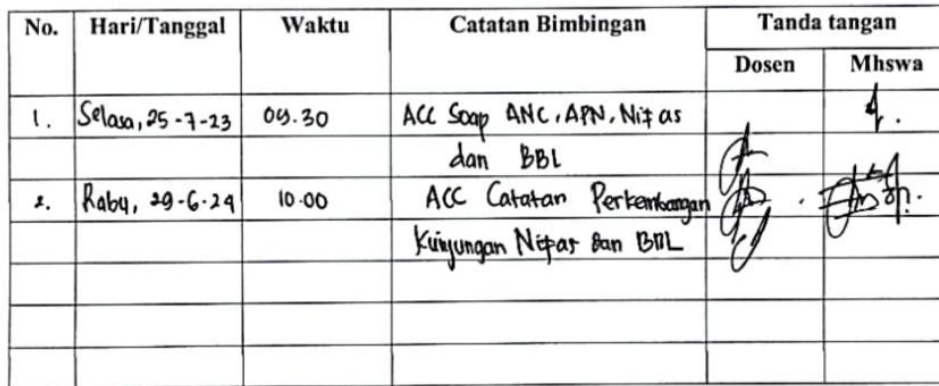 No. Hari/Tanggal Waktu Catatan Bimbingan Tanda tangan
Dosen Mhswa
1. Selasa, 25-7-23 09.30 ACC Soap ANC, APN, Nifas
dan BBL
2. Rabu, 29-6-24 10.00 ACC Catatan Perkembangan
Kunjungan Nifas dan BBL